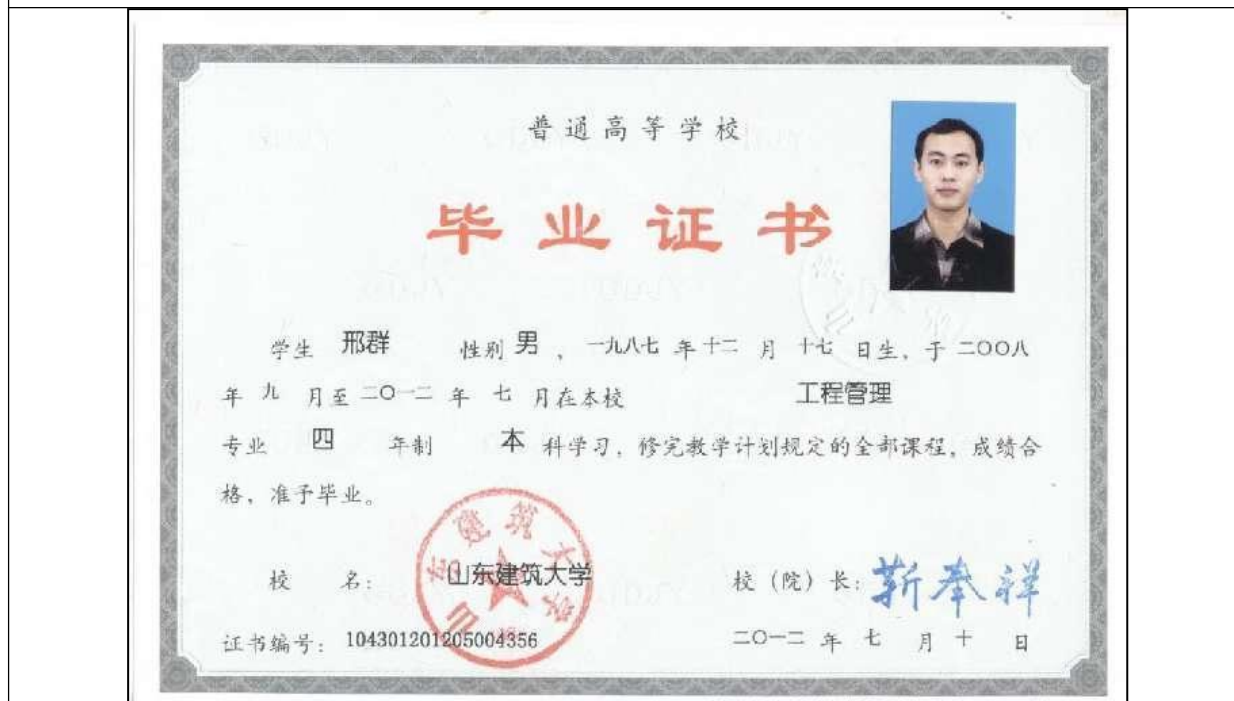 普通高等学校
毕业证书
学生 邢群 性别 男 ，一九八七 年 十二 月 十七 日生，于 二〇〇八
年 九 月至 二〇一二 年 七 月在本校 工程管理
专业 四 年制 本 科学习，修完教学计划规定的全部课程，成绩合
格，准予毕业。
山东建筑大学
校 名： 山东建筑大学 校（院）长：靳奉祥
证书编号： 104301201205004356 二〇一二 年 七 月 十 日